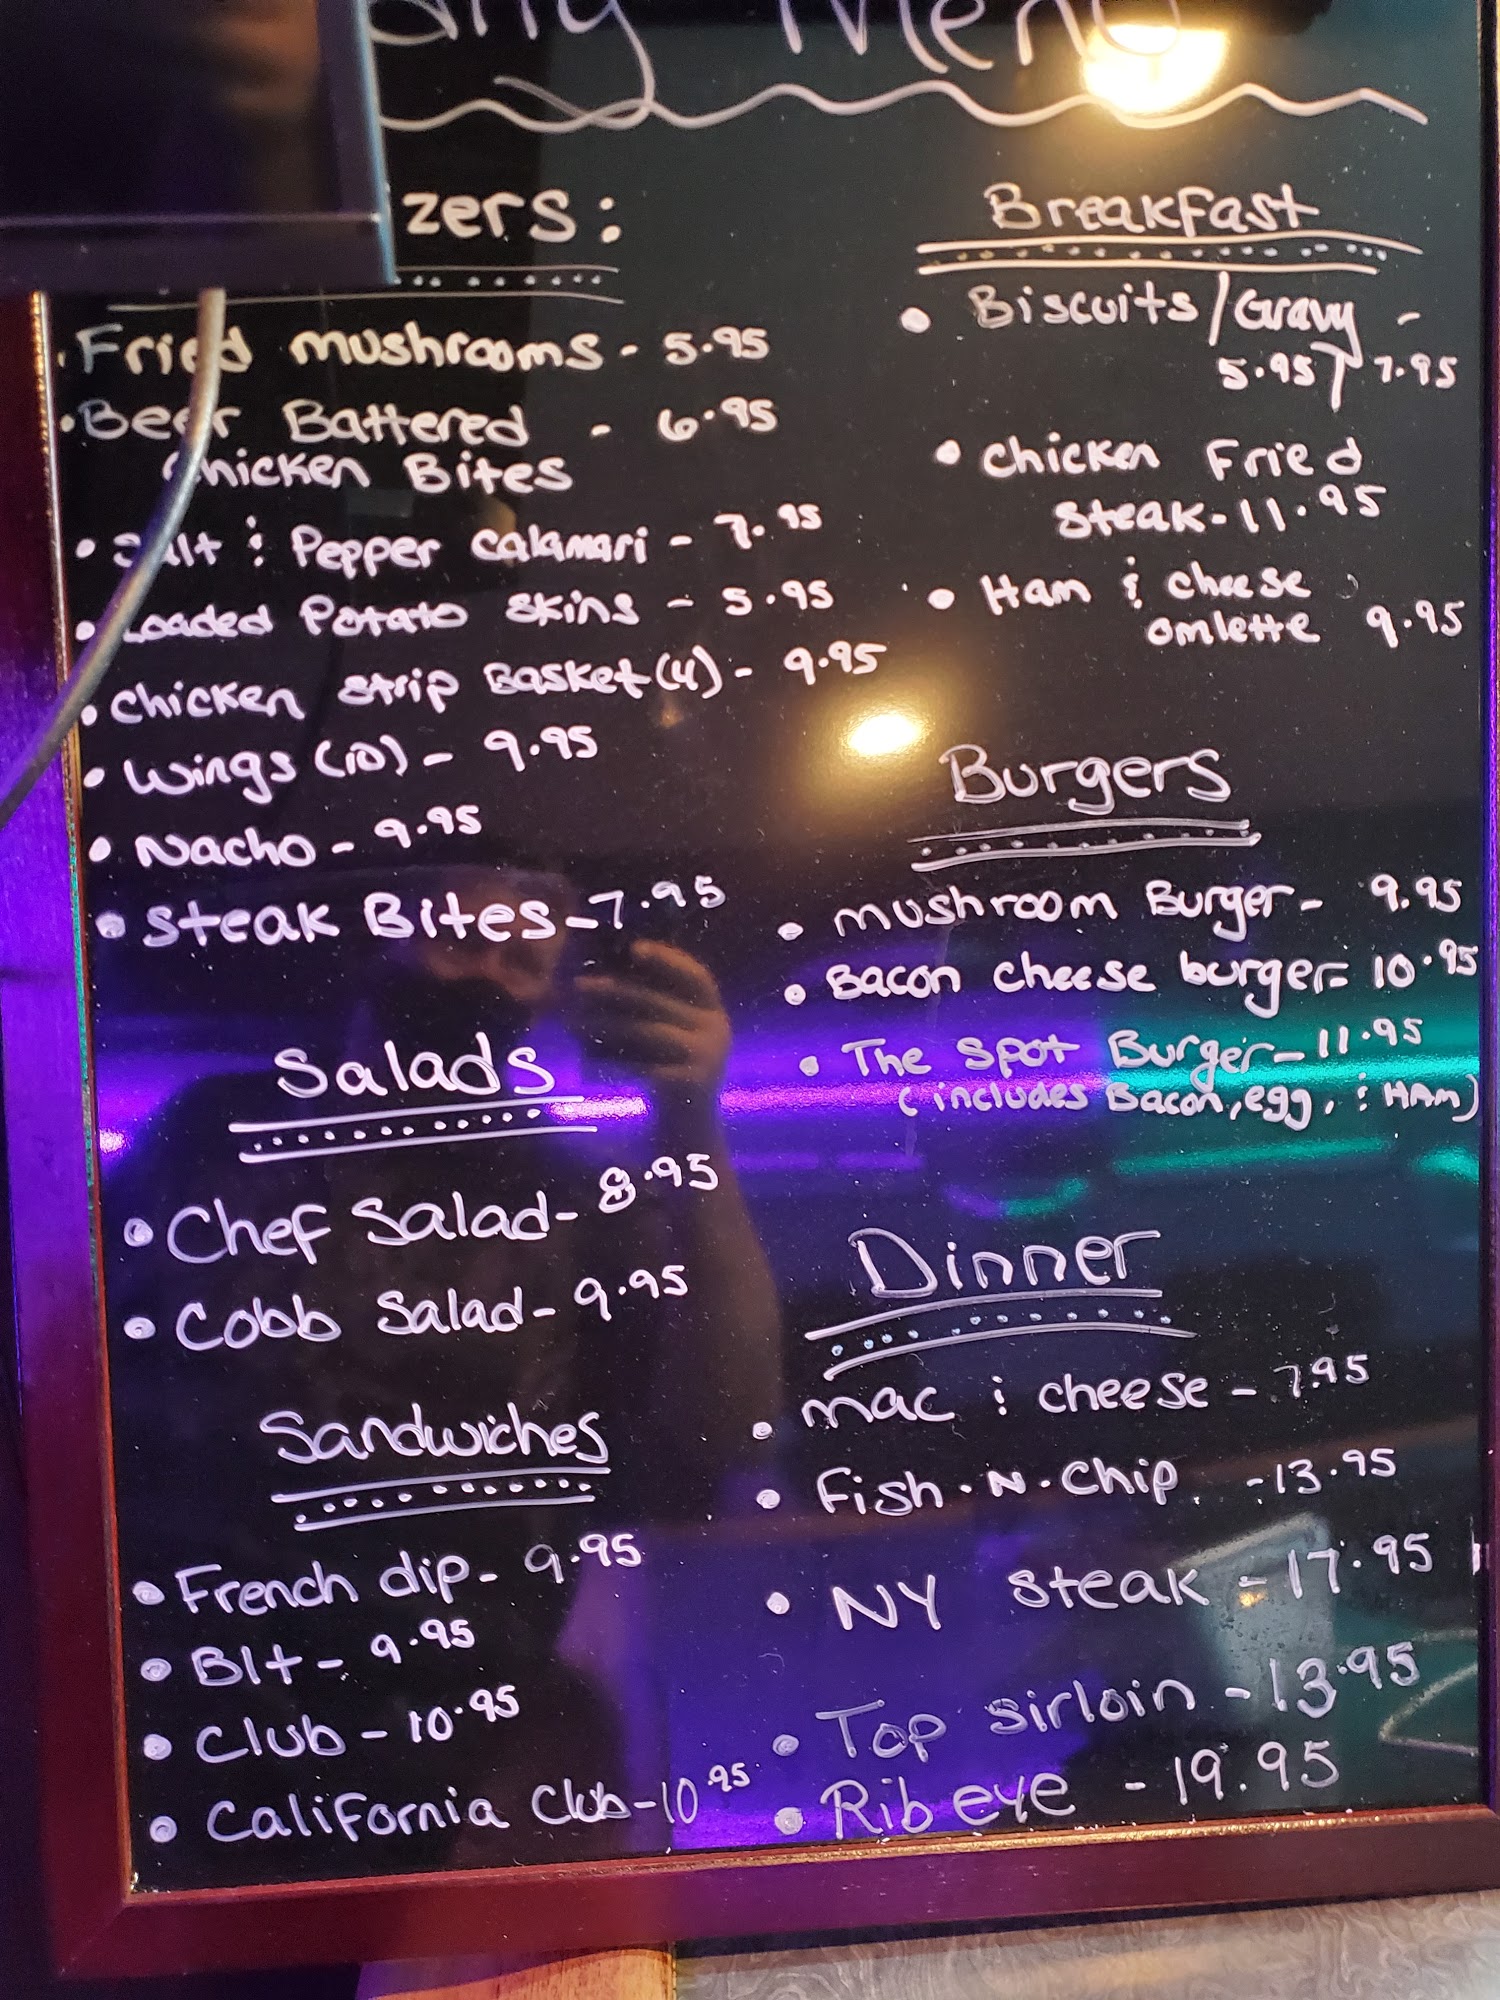 Menu
zers:
• Fried mushrooms - 5.95
• Beer Battered - 6.95
Chicken Bites
• Salt & Pepper Calamari - 7.95
• Loaded Potato Skins - 5.95
• Chicken Strip Basket (4) - 9.95
• Wings (10) - 9.95
• Nacho - 9.95
• Steak Bites - 7.95
Salads
• Chef Salad - 8.95
• Cobb Salad - 9.95
Sandwiches
• French dip - 9.95
• Blt - 9.95
• Club - 10.95
• California Club - 10.95
Breakfast
• Biscuits/Gravy -
5.95 / 7.95
• Chicken Fried
Steak - 11.95
• Ham & cheese
omlette 9.95
Burgers
• Mushroom Burger - 9.95
• Bacon cheese burger - 10.95
• The Spot Burger - 11.95
(includes Bacon, egg, & HAM)
Dinner
• Mac & cheese - 7.95
• Fish•N•Chip - 13.95
• NY Steak - 17.95
• Top Sirloin - 13.95
• Rib eye - 19.95